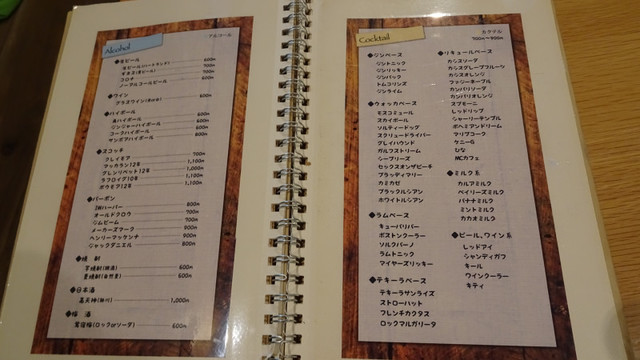 Alcohol
アルコール
◆生ビール 600円
生ビール(ハートランド) 700円
コロナ 600円
ノーアルコールビール
◆ワイン 600円
グラスワイン(赤or白)
◆ハイボール 600円
角ハイボール
ジンジャーハイボール 600円
コークハイボール 600円
マンゴアハイボール
◆スコッチ 700円
クレイモア
マッカラン12年 1,100円
グレンリベット12年 1,000円
ラフロイグ10年 1,100円
ボウモア12年 1,100円
◆バーボン
IWハーパー 800円
オールドクロウ 700円
ジムビーム 700円
メーカーズマーク 900円
ヘンリーマッケンナ 900円
ジャックダニエル 800円
◆焼 酎
600円
600円
◆日本酒
1,000円
◆梅 酒
鶯宿梅(ロックorソーダ) 600円
Cocktail
カクテル
700円~900円
◆ジンベース
ジントニック
ジンライム
◆ウォッカベース
モスコミュール
スカイボール
ソルティードッグ
スクリュードライバー
グレイハウンド
ガルフストリーム
シーブリーズ
セックスオンザビーチ
ブラッディマリー
カミカゼ
ブラックルシアン
ホワイトルシアン
◆ラムベース
キューバリバー
ボストンクーラー
ソルクバーノ
ラムトニック
マイヤーズリッキー
◆テキーラベース
テキーラサンライズ
ストローハット
フレンチカクタス
ロックマルガリータ
◆リキュールベース
カシスソーダ
カシスグレープフルーツ
カシスオレンジ
ファジーネーブル
カンパリソーダ
カンパリオレンジ
スプモーニ
レッドリップ
シャーリーテンプル
ボヘミアンドリーム
マリブコーク
MCカフェ
◆ミルク系
カルアミルク
ベイリーズミルク
バナナミルク
ミントミルク
カカオミルク
◆ビール、ワイン系
レッドアイ
シャンディガフ
キール
ワインクーラー
キティ